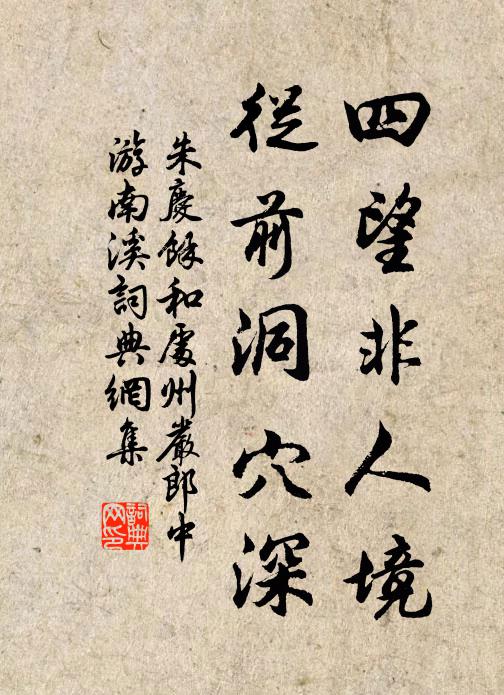 四望非人境
從前洞穴深
朱慶餘和處州嚴郎中
游南溪詞典網集
詞典网印